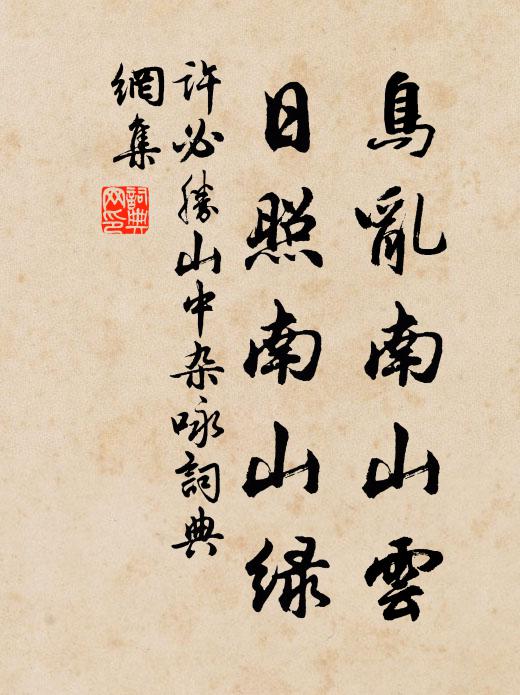 鳥亂南山雲
日照南山緑
許必勝山中杂咏詞典
網集
詞典網印